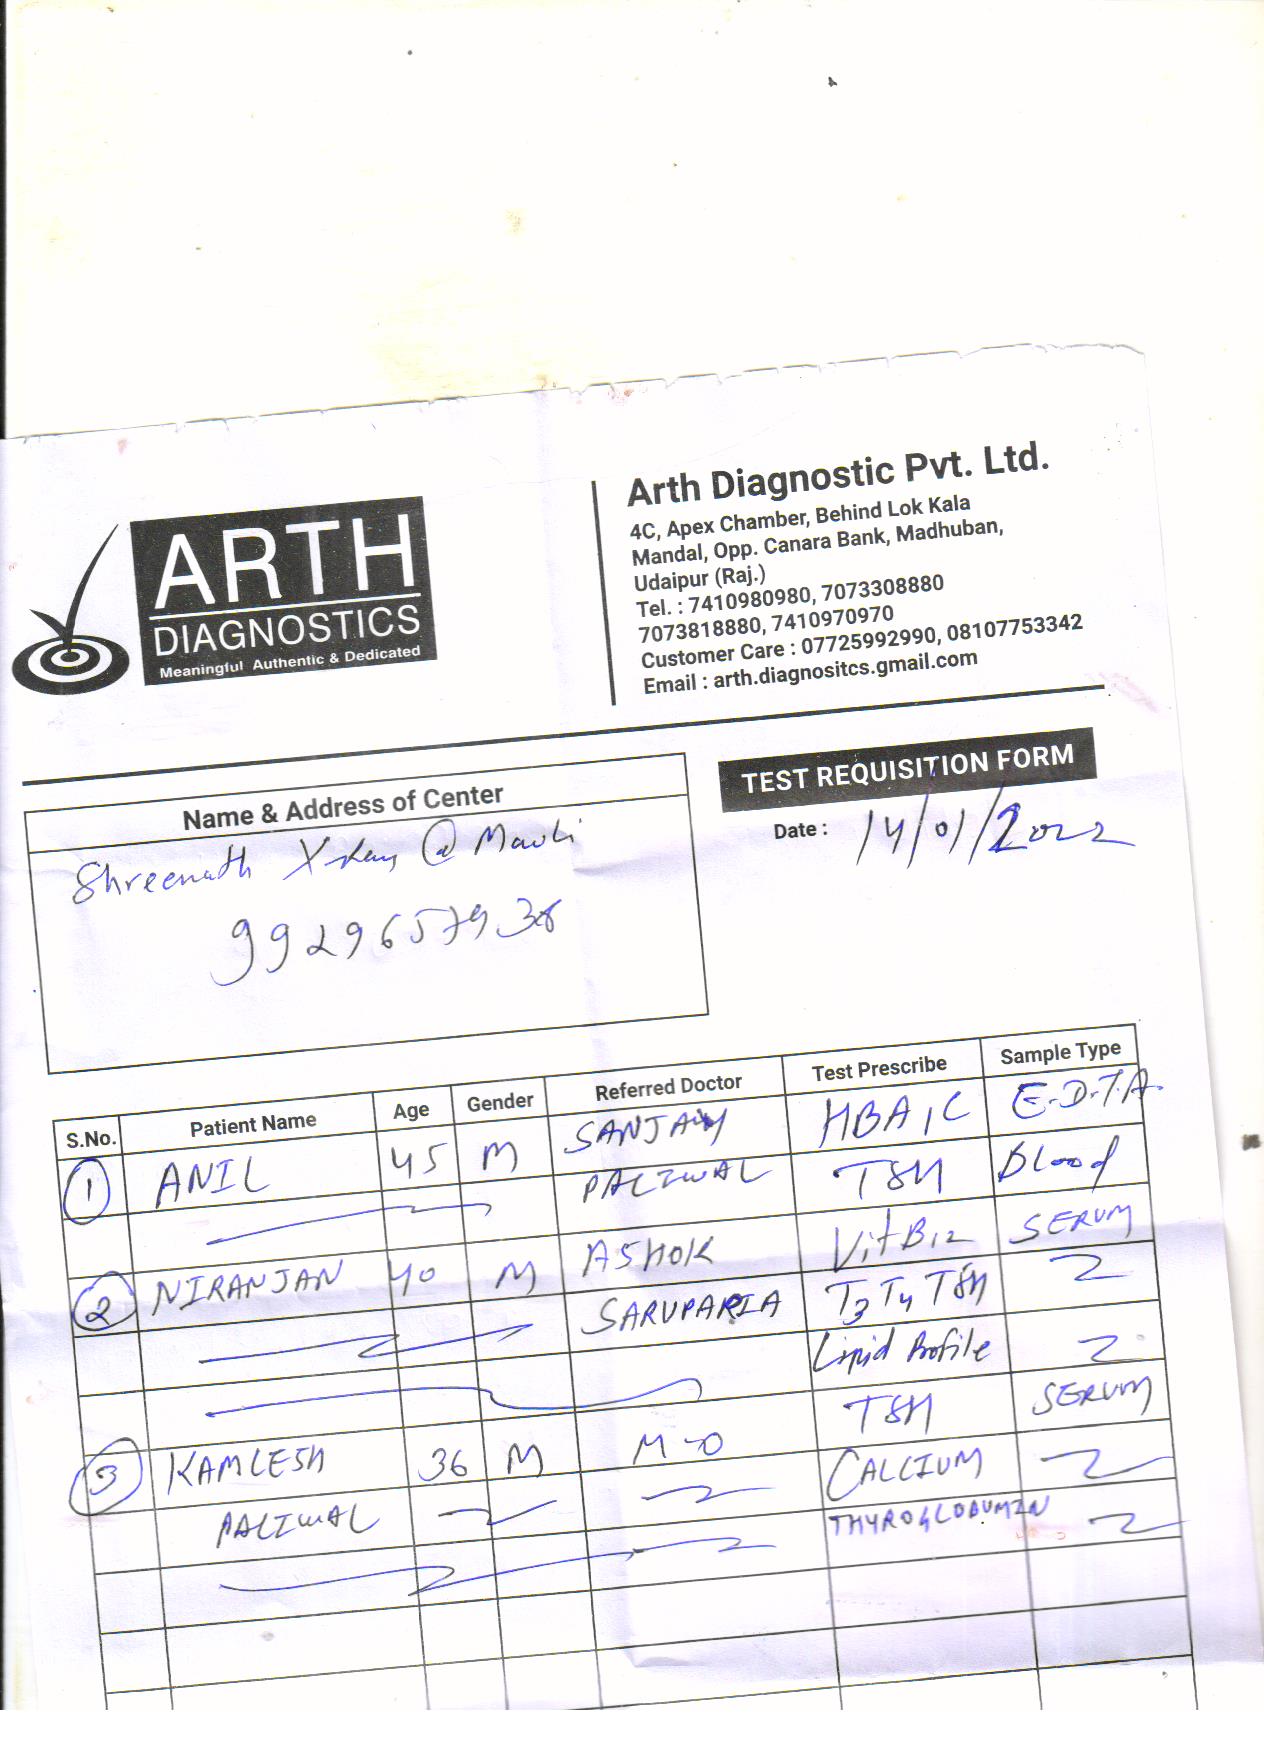 ARTH
DIAGNOSTICS
Meaningful Authentic & Dedicated
Arth Diagnostic Pvt. Ltd.
4C, Apex Chamber, Behind Lok Kala
Mandal, Opp. Canara Bank, Madhuban,
Udaipur (Raj.)
Tel. : 7410980980, 7073308880
7073818880, 7410970970
Customer Care : 07725992990, 08107753342
Email : arth.diagnositcs.gmail.com
TEST REQUISITION FORM
Date : 14/01/2022
Name & Address of Center
Shreenath X-ray @ Mavli
9929657938
S.No. Patient Name Age Gender Referred Doctor Test Prescribe Sample Type
1 ANIL 45 M SANJAY HBA1C E.D.T.A.
PALIWAL TSH Blood
2 NIRANJAN 40 M ASHOK Vit B12 SERUM
SARUPARIA T3 T4 TSH
Lipid Profile
TSH SERUM
3 KAMLESH 36 M M-O CALCIUM
PALIWAL THYROGLOBUMIN